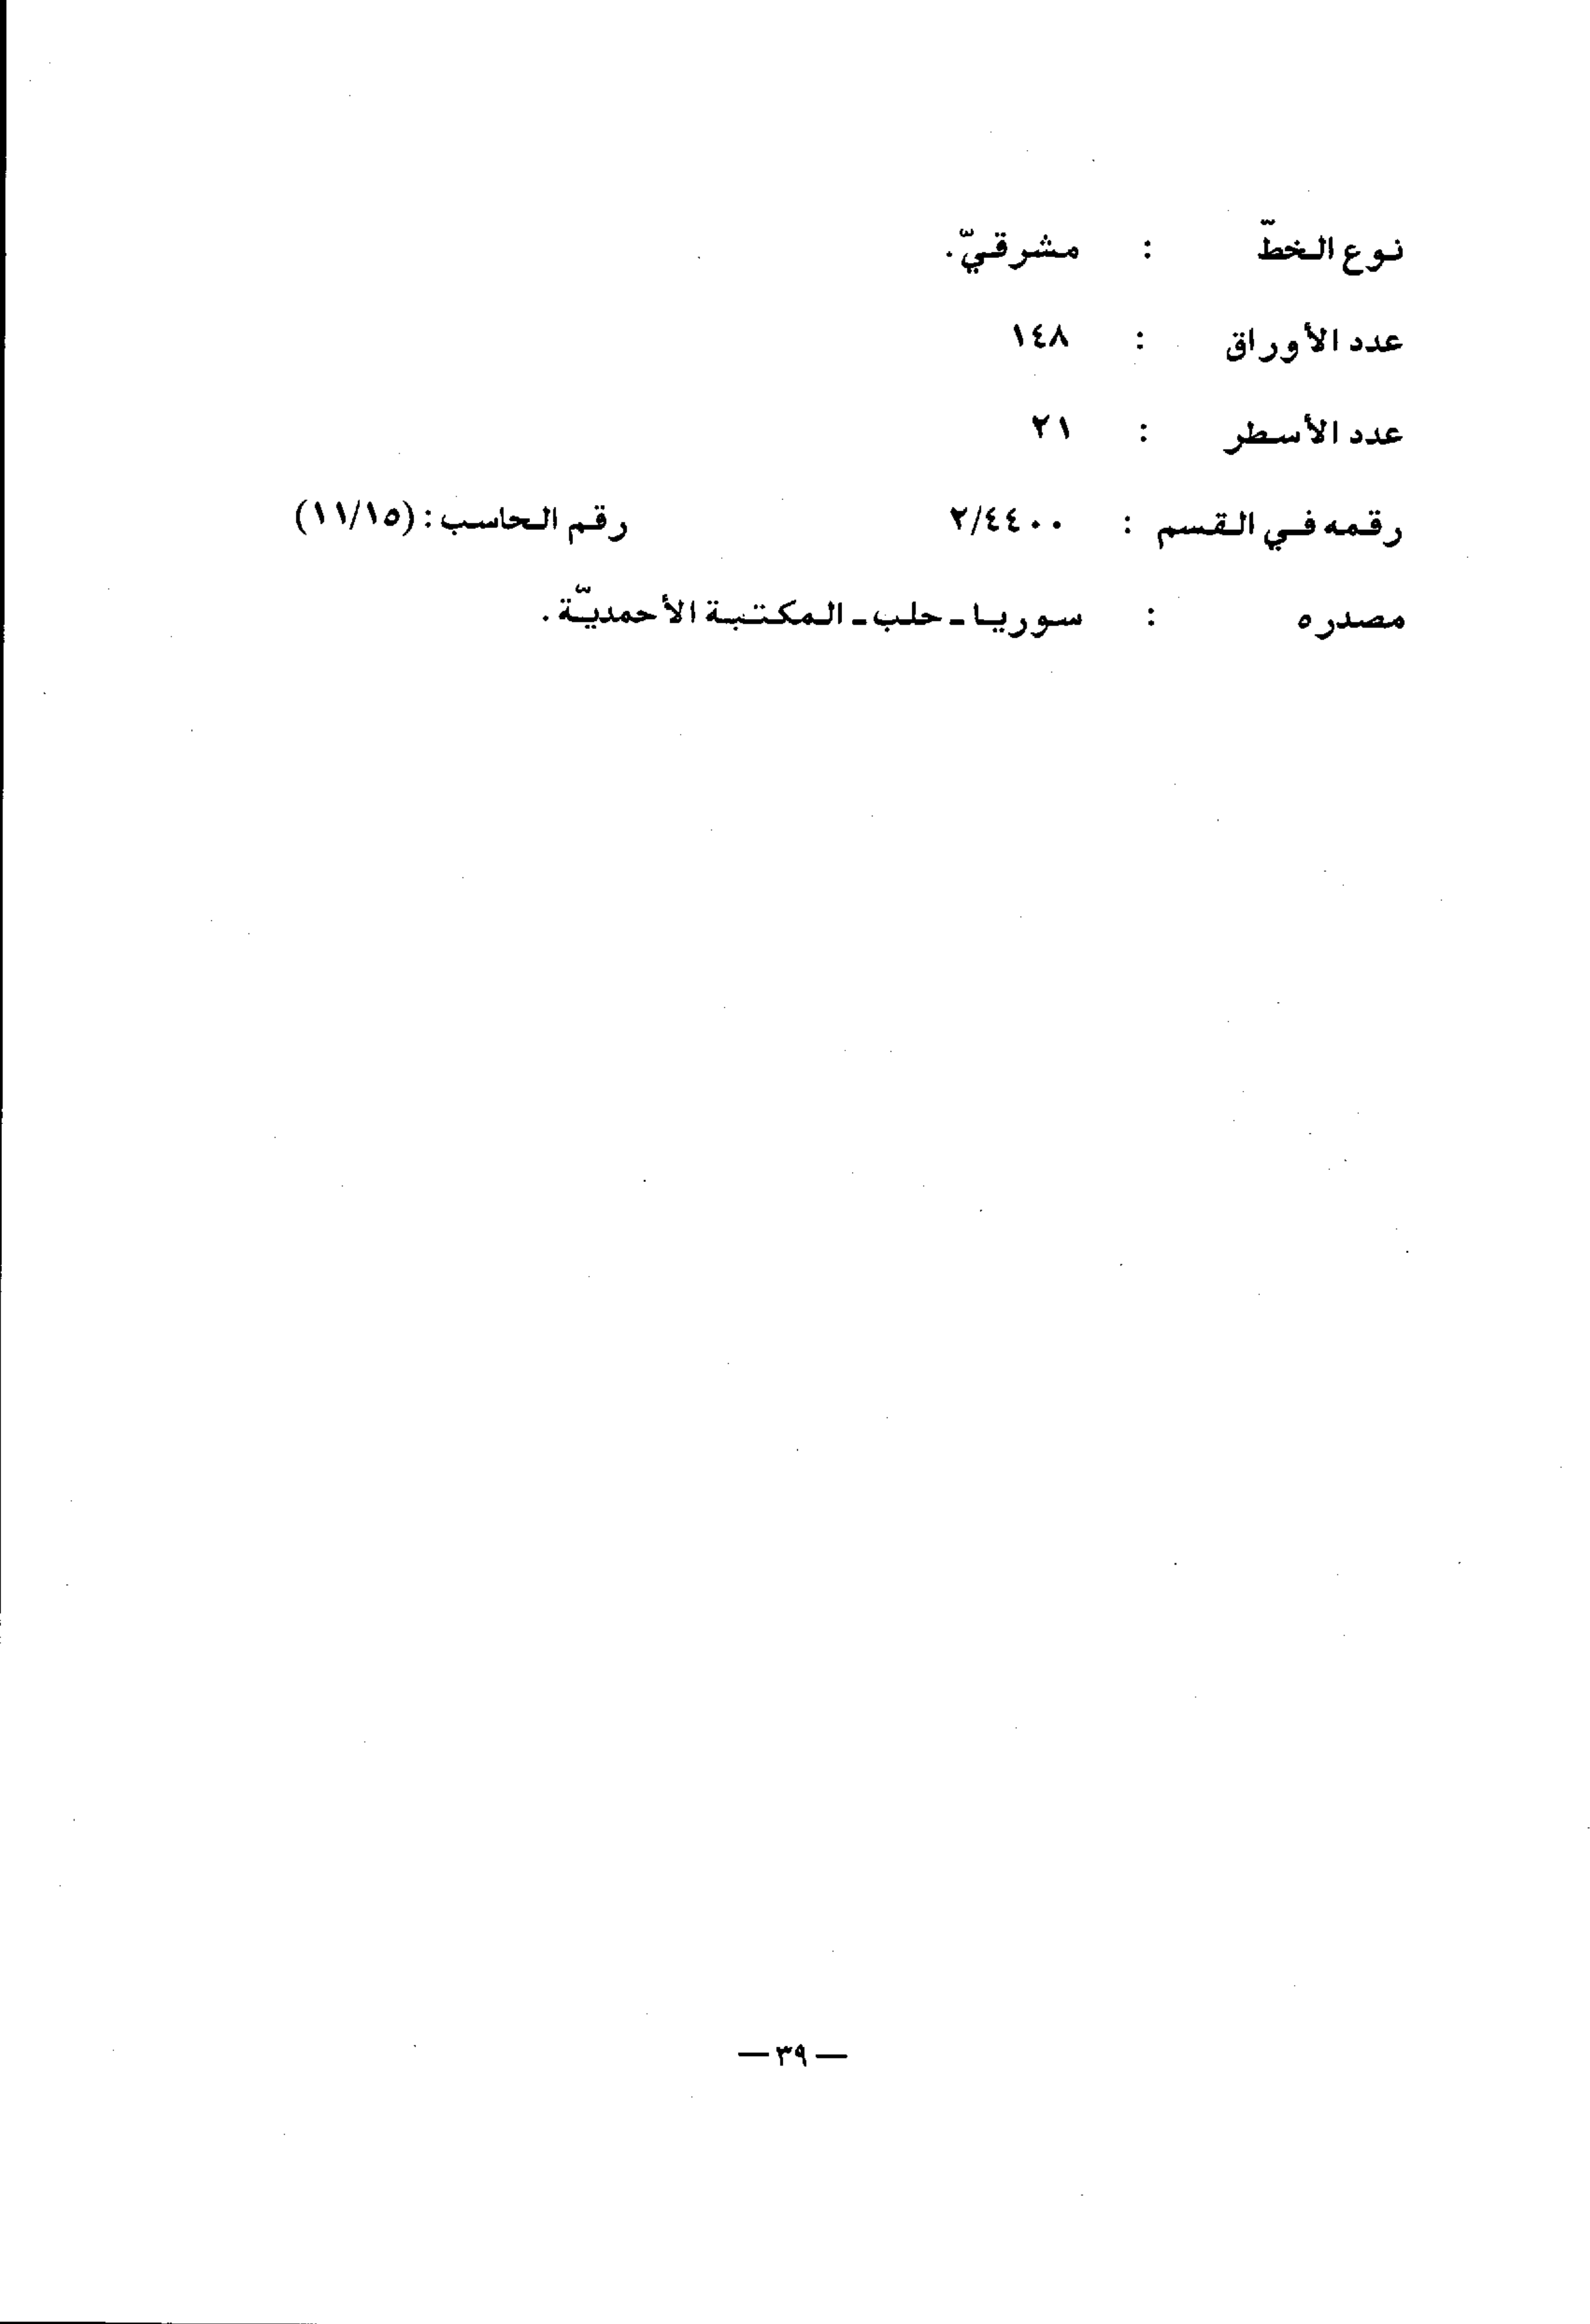 نوع الخطّ : مشرقيّ.
عدد الأوراق : ١٤٨
عدد الأسطر : ٢١
رقمه في القسم : ٢/٤٤٠٠ رقم الحاسب : (١١/١٥)
مصدره : سوريا ـ حلب ـ المكتبة الأحمديّة .
— ٣٩ —